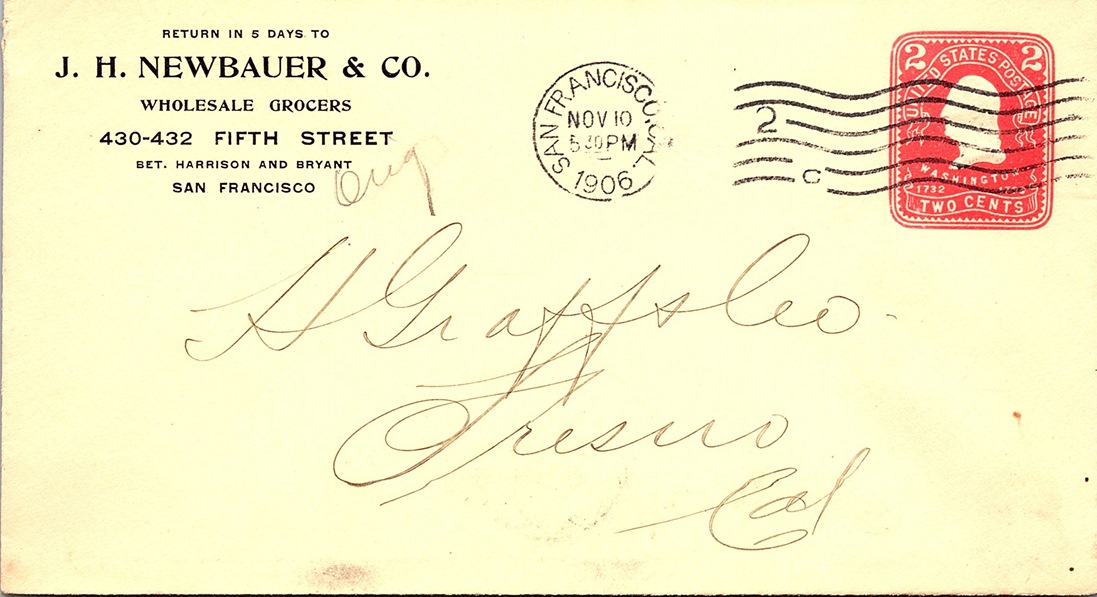 RETURN IN 5 DAYS TO
J. H. NEWBAUER & CO.
WHOLESALE GROCERS
430-432 FIFTH STREET
BET. HARRISON AND BRYANT
SAN FRANCISCO
SAN FRANCISCO, CAL.
NOV 10
5 30 PM
1906
2
C
2 2
UNITED STATES POSTAGE
WASHINGTON
1732
TWO CENTS
H Graff & Co.
Fresno
Cal